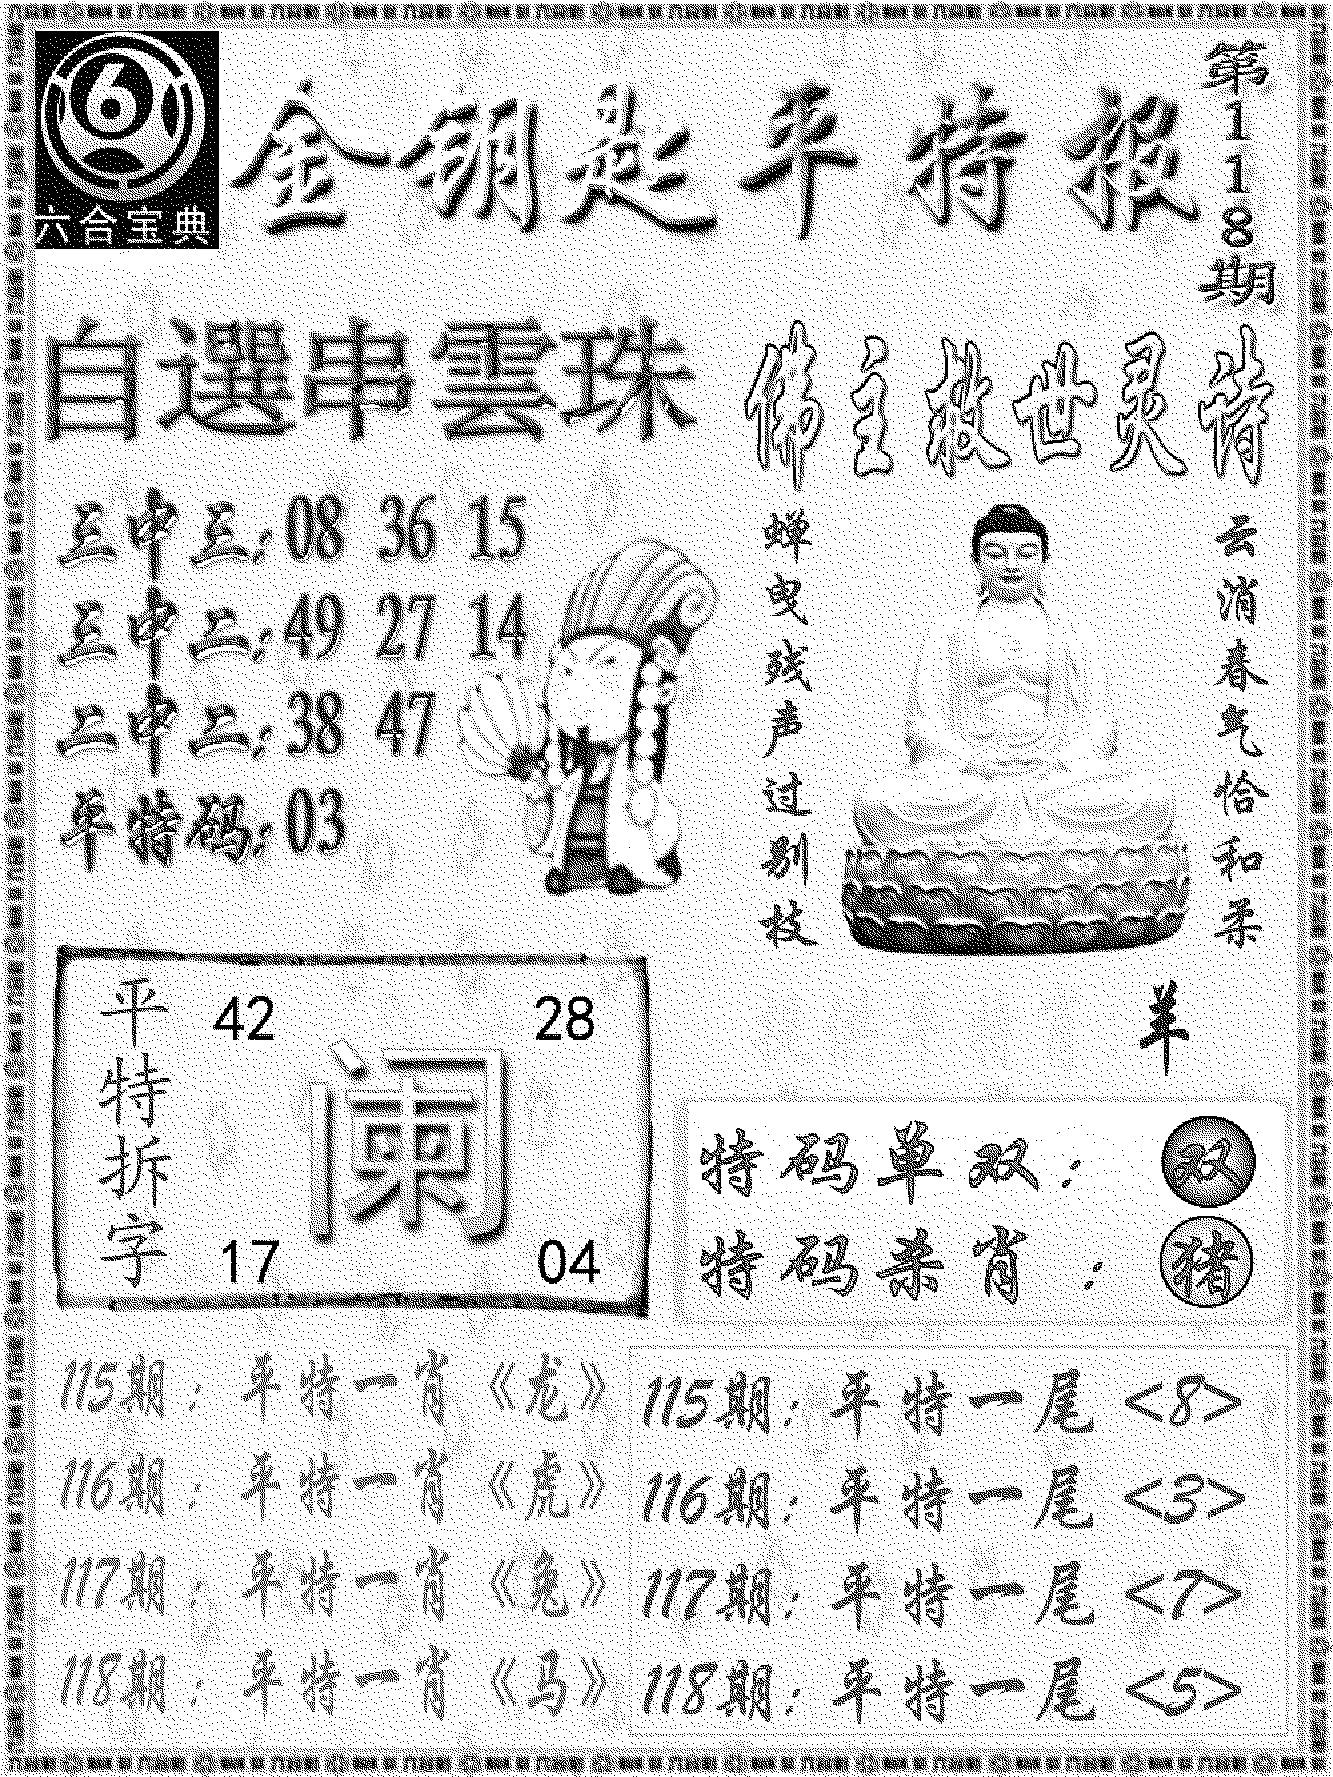 6
六合宝典
金钥匙平特报
第118期
自選串雲珠
三中三:08 36 15
三中二:49 27 14
二中二:38 47
平特码:03
佛主救世灵诗
云消春气恰和柔
蝉曳残声过别枝
羊
平特拆字
42 28
阑
17 04
特码单双:双
特码杀肖:猪
115期:平特一肖《龙》
116期:平特一肖《虎》
117期:平特一肖《兔》
118期:平特一肖《马》
115期:平特一尾<8>
116期:平特一尾<3>
117期:平特一尾<7>
118期:平特一尾<5>